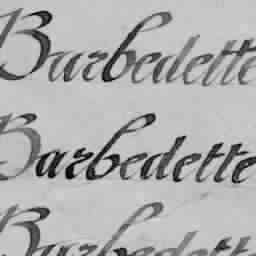 Barbedette
Barbedette
Barbedette